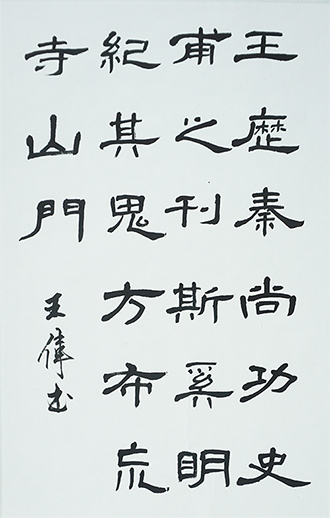 王歴秦尚功史
甫之刊斯奚明
紀其鬼方布
寺山門
王偉书